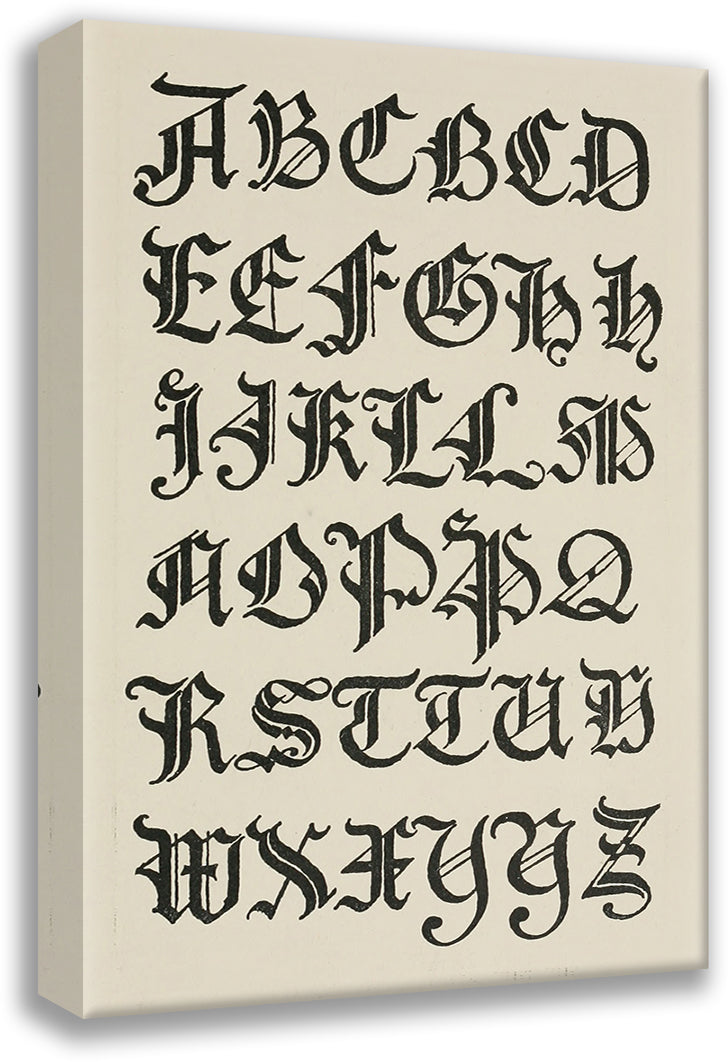 A B C B C D
E E F G H H
I J K L L M
N O P P Q
R S T T U V
W X X Y Y Z